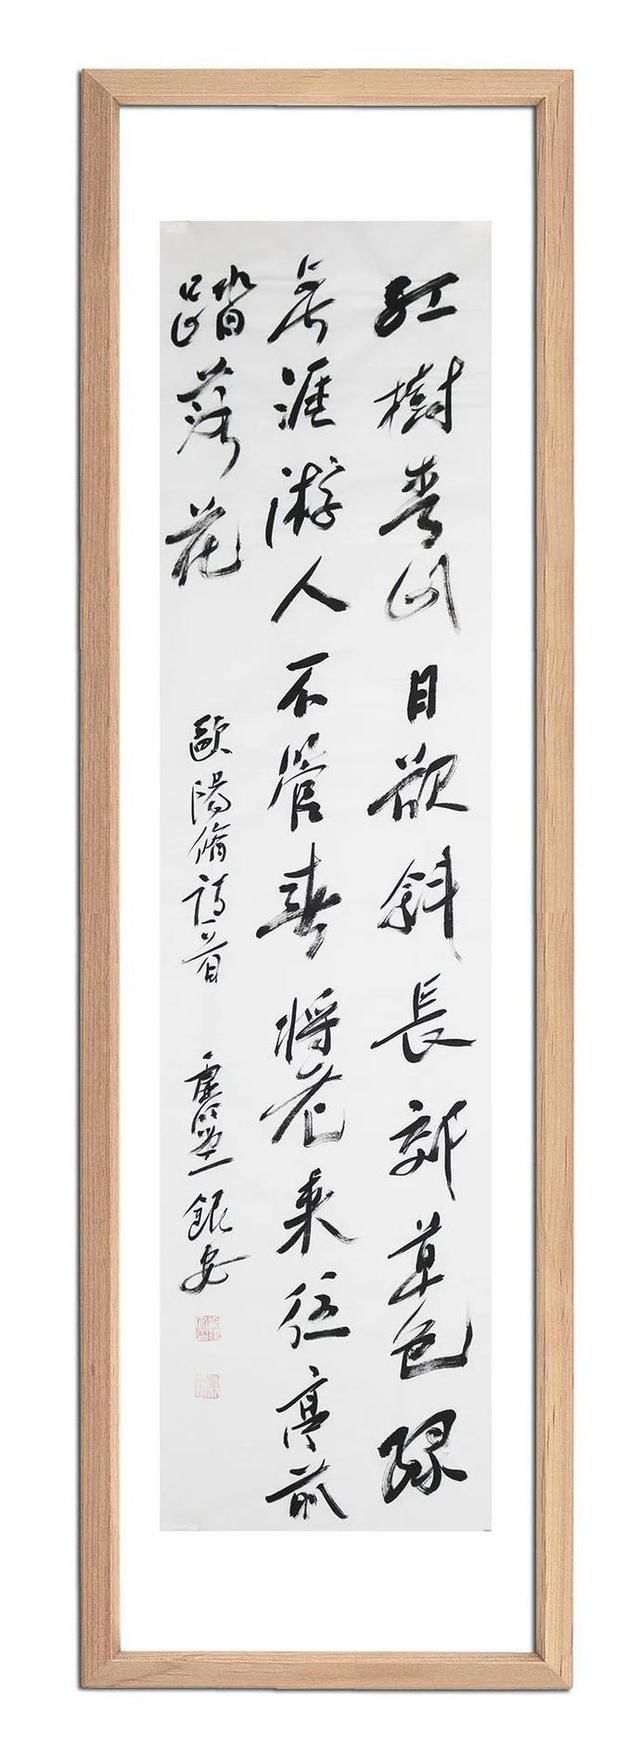 紅樹青山日欲斜長郊草色綠
無涯游人不管春將老來往亭前
踏落花
歐陽脩詩一首 銀安